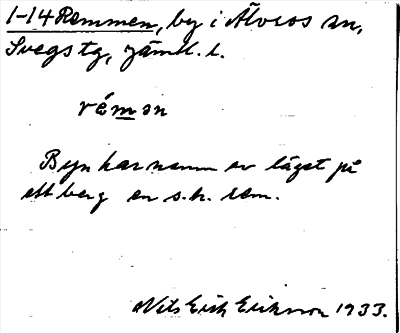 1-14 Remmen, by i Älvros sn,
Svegs tg, Jämtl. l.
réman
Byn har namn av läget på
ett berg en s.k. rem.
Nils Erik Eriksson 1933.